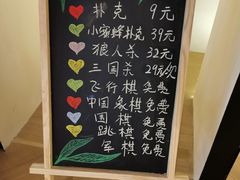 扑克 9元
小蜜蜂扑克 39元
狼人杀 32元
三国杀 29元/次
飞行棋 免费
中国象棋 免费
围棋 免费
跳棋 免费
军棋 免费